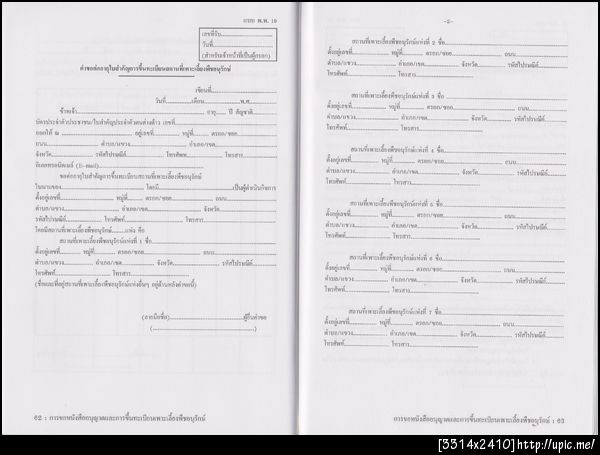 แบบ พ.พ. 19
เลขที่รับ
วันที่
(สำหรับเจ้าหน้าที่เป็นผู้กรอก)
คำขอต่ออายุใบสำคัญการขึ้นทะเบียนสถานที่เพาะเลี้ยงพืชอนุรักษ์
เขียนที่
วันที่ เดือน พ.ศ.
ข้าพเจ้า อายุ ปี สัญชาติ
บัตรประจำตัวประชาชน/ใบสำคัญประจำตัวคนต่างด้าว เลขที่
ออกให้ ณ อยู่เลขที่ หมู่ที่ ตรอก/ซอย
ถนน ตำบล/แขวง อำเภอ/เขต
จังหวัด รหัสไปรษณีย์ โทรศัพท์ โทรสาร
(E-mail)
ขอต่ออายุใบสำคัญการขึ้นทะเบียนสถานที่เพาะเลี้ยงพืชอนุรักษ์
ในนามของ โดยมี เป็นผู้ดำเนินกิจการ
ตั้งอยู่เลขที่ หมู่ที่ ตรอก/ซอย ถนน
ตำบล/แขวง อำเภอ/เขต จังหวัด
รหัสไปรษณีย์ โทรศัพท์ โทรสาร
โดยมีสถานที่เพาะเลี้ยงพืชอนุรักษ์ แห่ง คือ
สถานที่เพาะเลี้ยงพืชอนุรักษ์แห่งที่ 1 ชื่อ
ตั้งอยู่เลขที่ หมู่ที่ ตรอก/ซอย ถนน
ตำบล/แขวง อำเภอ/เขต จังหวัด รหัสไปรษณีย์
โทรศัพท์ โทรสาร
(ชื่อและที่อยู่สถานที่เพาะเลี้ยงพืชอนุรักษ์แห่งอื่นๆ อยู่ด้านหลังคำขอนี้)
(ลายมือชื่อ) ผู้ยื่นคำขอ
( )
62 : การขอหนังสืออนุญาตและการขึ้นทะเบียนเพาะเลี้ยงพืชอนุรักษ์
-2-
สถานที่เพาะเลี้ยงพืชอนุรักษ์แห่งที่ 2 ชื่อ
ตั้งอยู่เลขที่ หมู่ที่ ตรอก/ซอย ถนน
ตำบล/แขวง อำเภอ/เขต จังหวัด รหัสไปรษณีย์
โทรศัพท์ โทรสาร
สถานที่เพาะเลี้ยงพืชอนุรักษ์แห่งที่ 3 ชื่อ
ตั้งอยู่เลขที่ หมู่ที่ ตรอก/ซอย ถนน
ตำบล/แขวง อำเภอ/เขต จังหวัด รหัสไปรษณีย์
โทรศัพท์ โทรสาร
สถานที่เพาะเลี้ยงพืชอนุรักษ์แห่งที่ 4 ชื่อ
ตั้งอยู่เลขที่ หมู่ที่ ตรอก/ซอย ถนน
ตำบล/แขวง อำเภอ/เขต จังหวัด รหัสไปรษณีย์
โทรศัพท์ โทรสาร
สถานที่เพาะเลี้ยงพืชอนุรักษ์แห่งที่ 5 ชื่อ
ตั้งอยู่เลขที่ หมู่ที่ ตรอก/ซอย ถนน
ตำบล/แขวง อำเภอ/เขต จังหวัด รหัสไปรษณีย์
โทรศัพท์ โทรสาร
สถานที่เพาะเลี้ยงพืชอนุรักษ์แห่งที่ 6 ชื่อ
ตั้งอยู่เลขที่ หมู่ที่ ตรอก/ซอย ถนน
ตำบล/แขวง อำเภอ/เขต จังหวัด รหัสไปรษณีย์
โทรศัพท์ โทรสาร
สถานที่เพาะเลี้ยงพืชอนุรักษ์แห่งที่ 7 ชื่อ
ตั้งอยู่เลขที่ หมู่ที่ ตรอก/ซอย ถนน
ตำบล/แขวง อำเภอ/เขต จังหวัด รหัสไปรษณีย์
โทรศัพท์ โทรสาร
การขอหนังสืออนุญาตและการขึ้นทะเบียนเพาะเลี้ยงพืชอนุรักษ์ : 63
[3314x2410]http://upic.me/